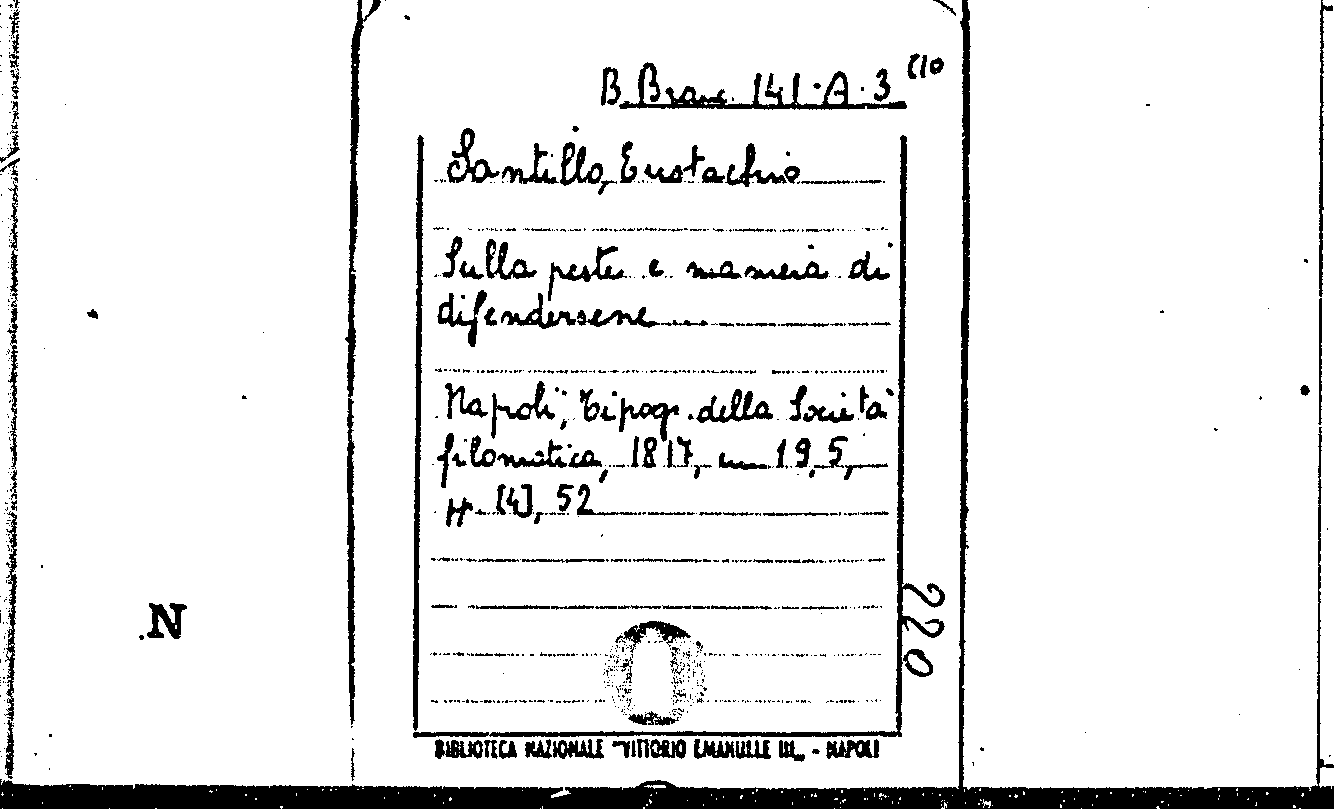 B. Branc. 141.A.3
Santillo, Eustachio
Sulla peste e maniera di
difendersene...
Napoli, Tipogr. della Società
filomatica, 1817, cm 19,5,
pp. [4], 52
220
N
BIBLIOTECA NAZIONALE "VITTORIO EMANUELE III" - NAPOLI